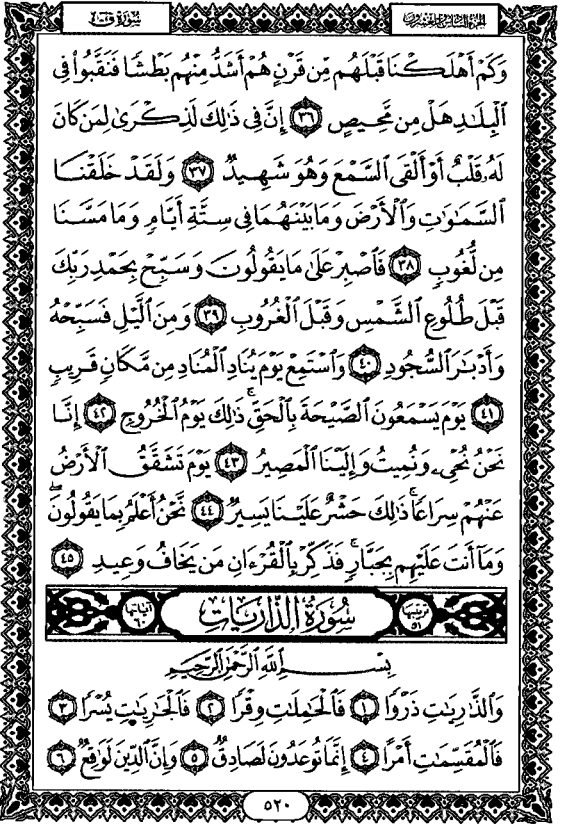 سُورَةُ قٓ
الجزء السادس والعشرون
وَكَمْ أَهْلَكْنَا قَبْلَهُم مِّن قَرْنٍ هُمْ أَشَدُّ مِنْهُم بَطْشًا فَنَقَّبُوا۟ فِى
ٱلْبِلَـٰدِ هَلْ مِن مَّحِيصٍ ٣٦ إِنَّ فِى ذَٰلِكَ لَذِكْرَىٰ لِمَن كَانَ
لَهُۥ قَلْبٌ أَوْ أَلْقَى ٱلسَّمْعَ وَهُوَ شَهِيدٌ ٣٧ وَلَقَدْ خَلَقْنَا
ٱلسَّمَـٰوَٰتِ وَٱلْأَرْضَ وَمَا بَيْنَهُمَا فِى سِتَّةِ أَيَّامٍ وَمَا مَسَّنَا
مِن لُّغُوبٍ ٣٨ فَٱصْبِرْ عَلَىٰ مَا يَقُولُونَ وَسَبِّحْ بِحَمْدِ رَبِّكَ
قَبْلَ طُلُوعِ ٱلشَّمْسِ وَقَبْلَ ٱلْغُرُوبِ ٣٩ وَمِنَ ٱلَّيْلِ فَسَبِّحْهُ
وَأَدْبَـٰرَ ٱلسُّجُودِ ٤٠ وَٱسْتَمِعْ يَوْمَ يُنَادِ ٱلْمُنَادِ مِن مَّكَانٍ قَرِيبٍ
٤١ يَوْمَ يَسْمَعُونَ ٱلصَّيْحَةَ بِٱلْحَقِّ ۚ ذَٰلِكَ يَوْمُ ٱلْخُرُوجِ ٤٢ إِنَّا
نَحْنُ نُحْىِۦ وَنُمِيتُ وَإِلَيْنَا ٱلْمَصِيرُ ٤٣ يَوْمَ تَشَقَّقُ ٱلْأَرْضُ
عَنْهُمْ سِرَاعًا ۚ ذَٰلِكَ حَشْرٌ عَلَيْنَا يَسِيرٌ ٤٤ نَّحْنُ أَعْلَمُ بِمَا يَقُولُونَ ۖ
وَمَآ أَنتَ عَلَيْهِم بِجَبَّارٍ ۖ فَذَكِّرْ بِٱلْقُرْءَانِ مَن يَخَافُ وَعِيدِ ٤٥
ترتيبها ٥١ سُورَةُ الذَّارِيَاتِ آياتها ٦٠
بِسْمِ ٱللَّهِ ٱلرَّحْمَـٰنِ ٱلرَّحِيمِ
وَٱلذَّٰرِيَـٰتِ ذَرْوًا ١ فَٱلْحَـٰمِلَـٰتِ وِقْرًا ٢ فَٱلْجَـٰرِيَـٰتِ يُسْرًا ٣
فَٱلْمُقَسِّمَـٰتِ أَمْرًا ٤ إِنَّمَا تُوعَدُونَ لَصَادِقٌ ٥ وَإِنَّ ٱلدِّينَ لَوَٰقِعٌ ٦
٥٢٠